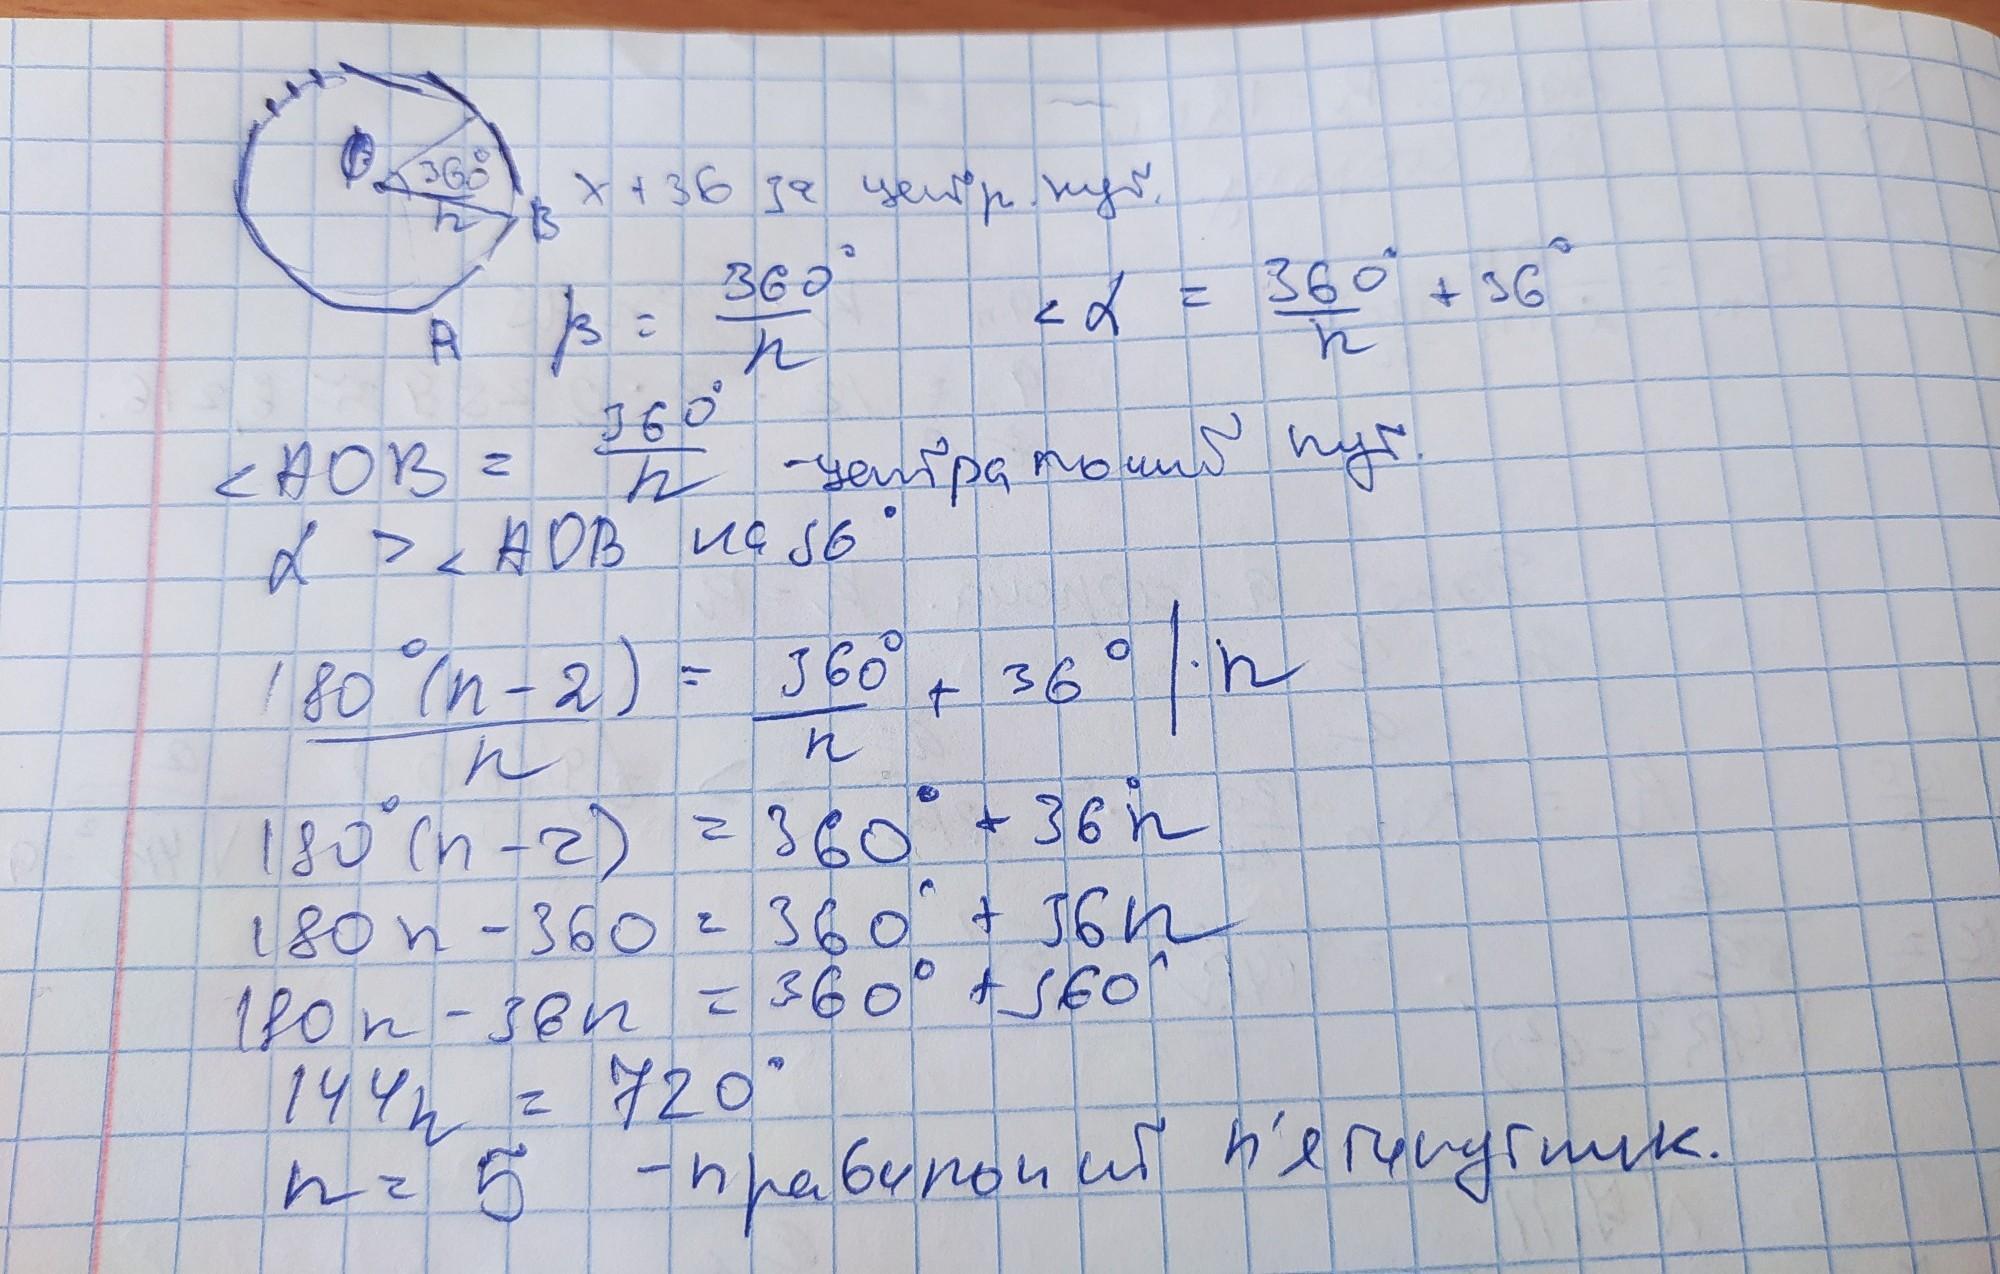 O 360° n B x + 36 за центр. кут.
A β = 360°/n <α = 360°/n + 36°
<AOB = 360°/n - центральний кут.
α > <AOB на 36°
180°(n-2)/n = 360°/n + 36° | · n
180°(n-2) = 360° + 36°n
180n - 360 = 360° + 36n
180n - 36n = 360° + 360°
144n = 720°
n = 5 - правильний п'ятикутник.